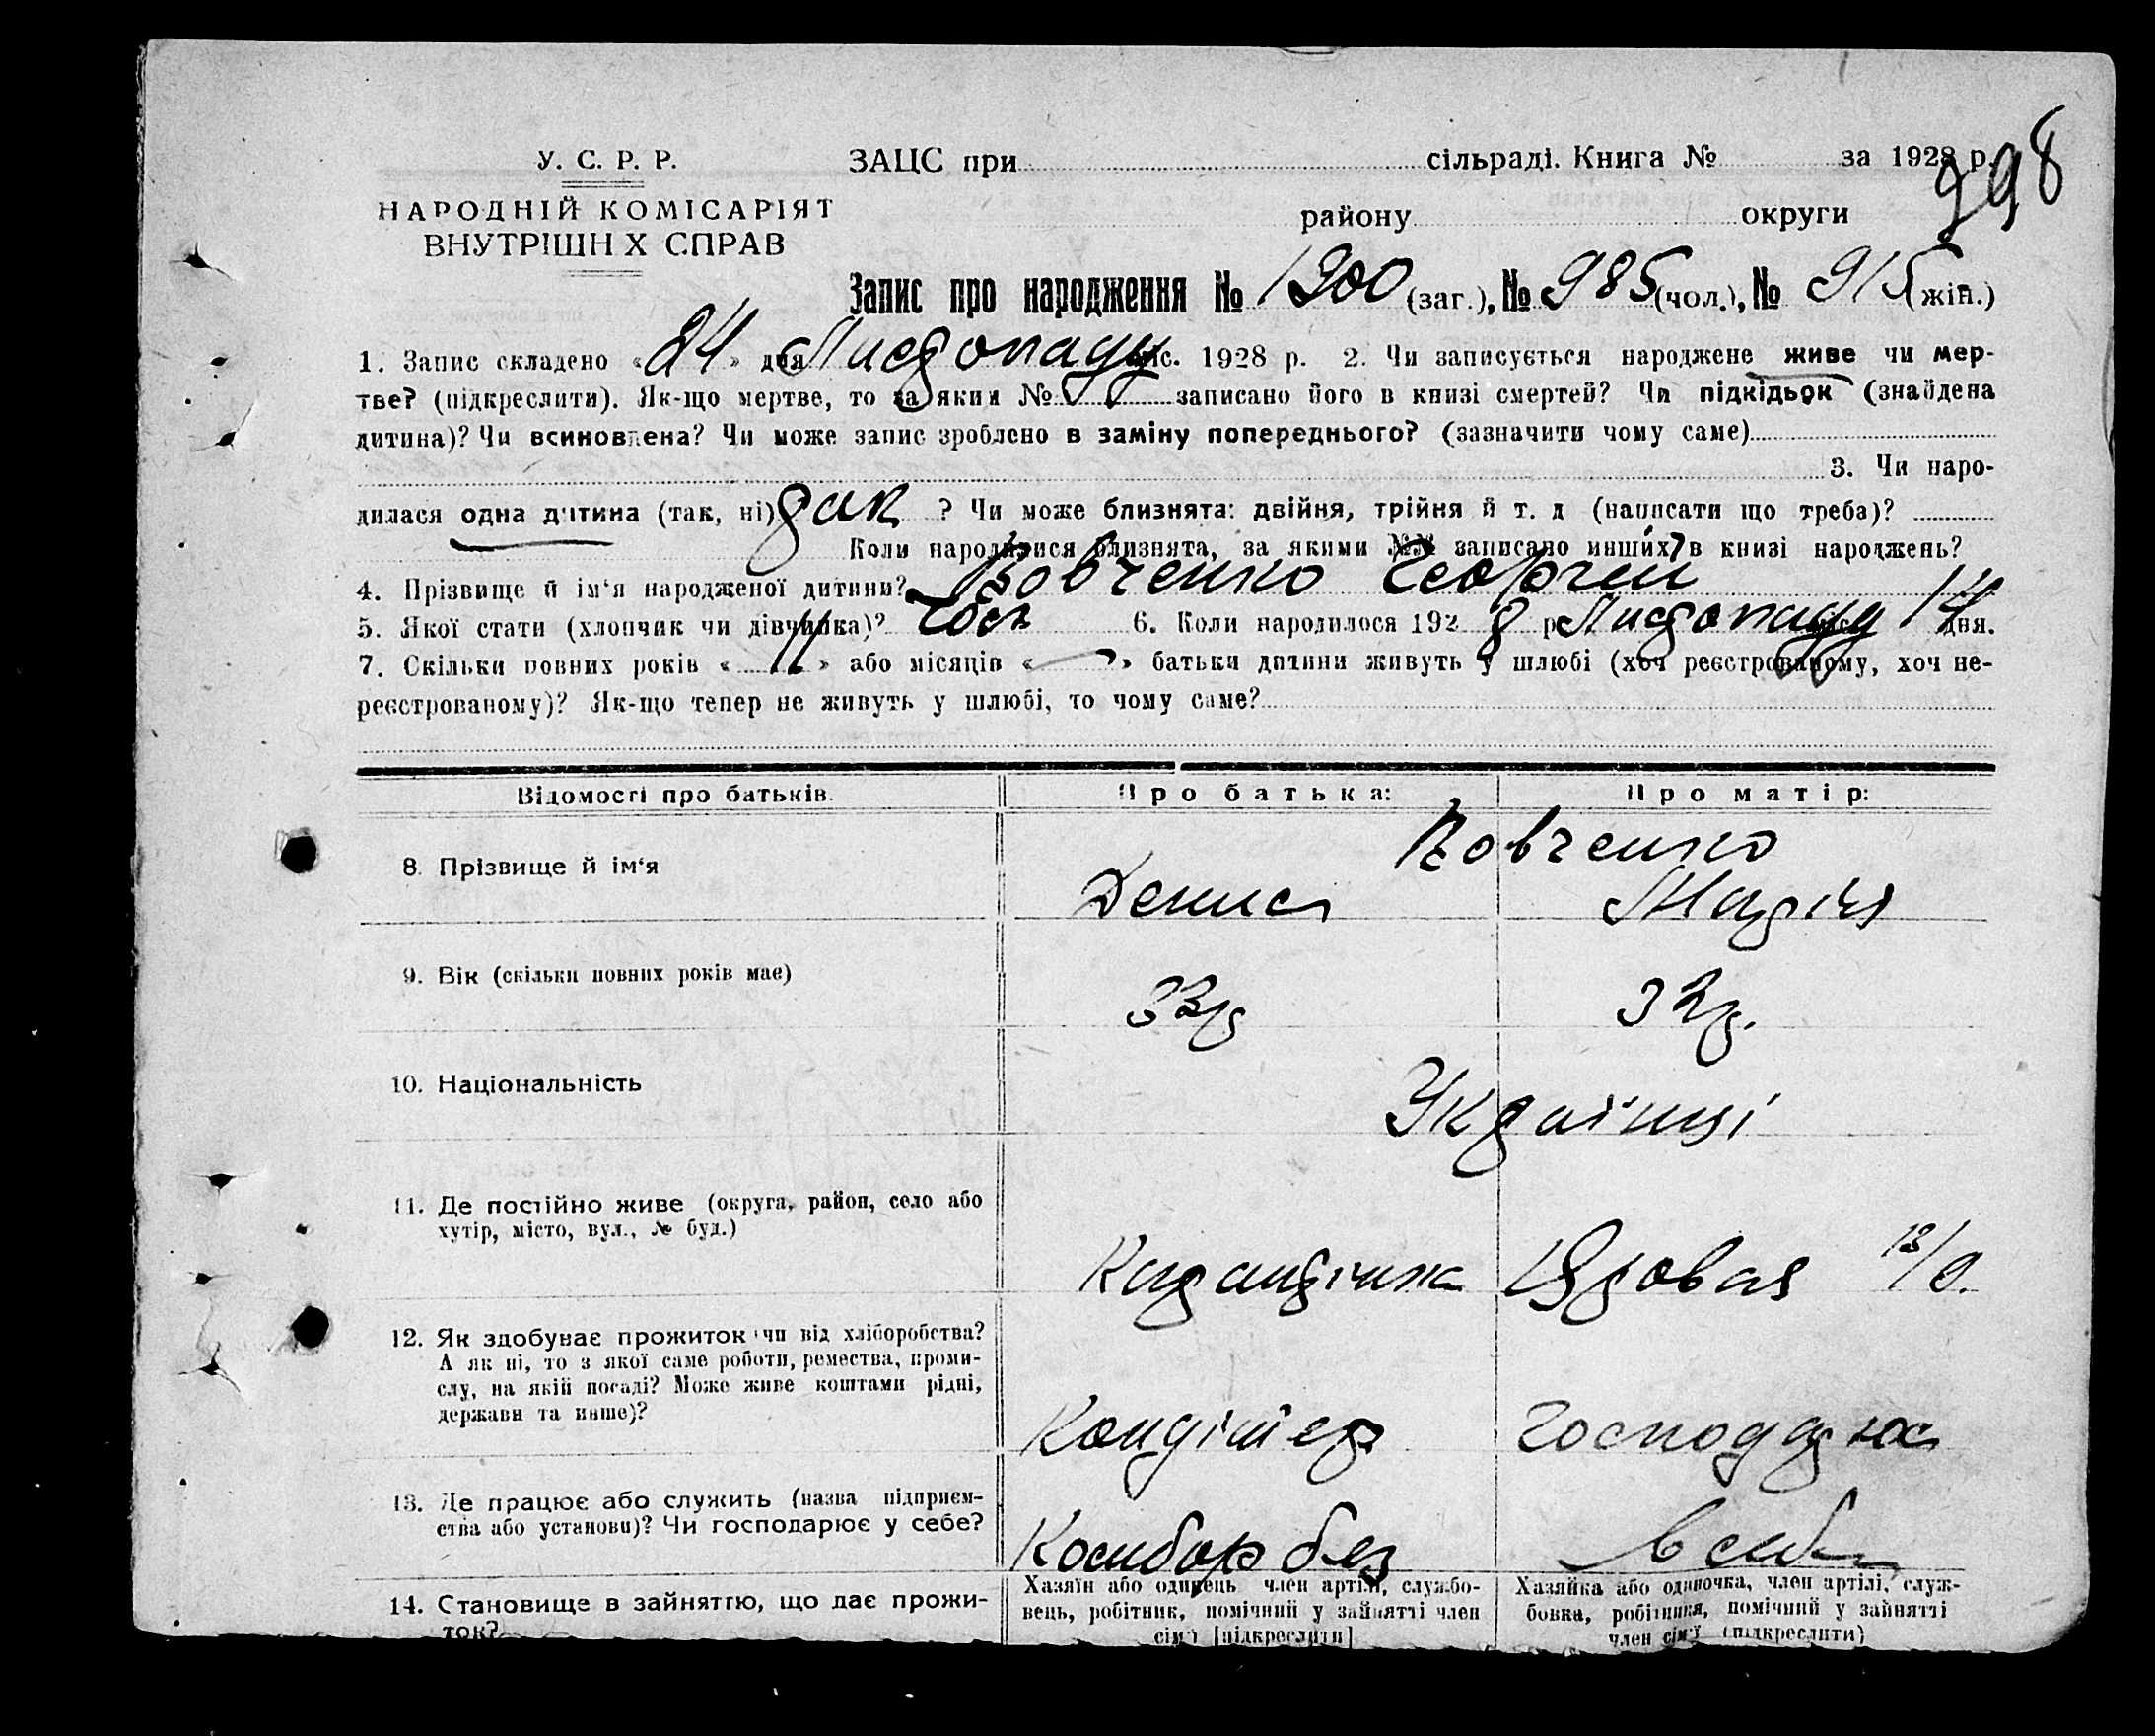 998
У. С. Р. Р. ЗАЦС при сільраді. Книга № за 1928 р.
НАРОДНІЙ КОМІСАРІЯТ району округи
ВНУТРІШН Х СПРАВ
Запис про народження № 1900 (заг.), № 985 (чол.), № 915 (жін.)
1. Запис складено «24» дня Листопаду міс. 1928 р. 2. Чи записується народжене живе чи мер-
тве? (підкреслити). Як-що мертве, то за яким № записано його в книзі смертей? Чи підкідьок (знайдена
дитина)? Чи всиновлена? Чи може запис зроблено в заміну попереднього? (зазначити чому саме)
3. Чи наро-
дилася одна дитина (так, ні) так ? Чи може близнята: двійня, трійня й т. д (написати що треба)?
Коли народилися близнята, за якими №№ записано инших в книзі народжень?
4. Прізвище й ім‘я народженої дитини? Вовченко Георгий
5. Якої стати (хлопчик чи дівчинка)? 6. Коли народилося 1928 р Листопаду міс 14 дня.
7. Скільки повних років « 11 » або місяців « » батьки дитини живуть у шлюбі (хоч реєстрованому, хоч не-
реєстрованому)? Як-що тепер не живуть у шлюбі, то чому саме?
Відомості про батьків. Про батька: Про матір:
Вовченко
8. Прізвище й ім‘я Денис Марія
9. Вік (скільки повних років має) 33р 32р.
10. Національність Українці
11. Де постійно живе (округа, район, село або
хутір, місто, вул., № буд.)
12. Як здобуває прожиток чи від хліборобства?
А як ні, то з якої саме роботи, ремества, проми-
слу, на якій посаді? Може живе коштами рідні,
держави та инше)? Кондітер Господарює
13. Де працює або служить (назва підприєм-
ства або установи)? Чи господарює у себе? без
14. Становище в зайняттю, що дає прожи-
ток?
Хазяїн або одинець член артілі, службо-
вець, робітник, помічний у зайнятті член
сім‘ї [підкреслити]
Хазяйка або одиночка, член артілі, служ-
бовка, робітниця, помічний у зайнятті
член сім‘ї (підкреслити)